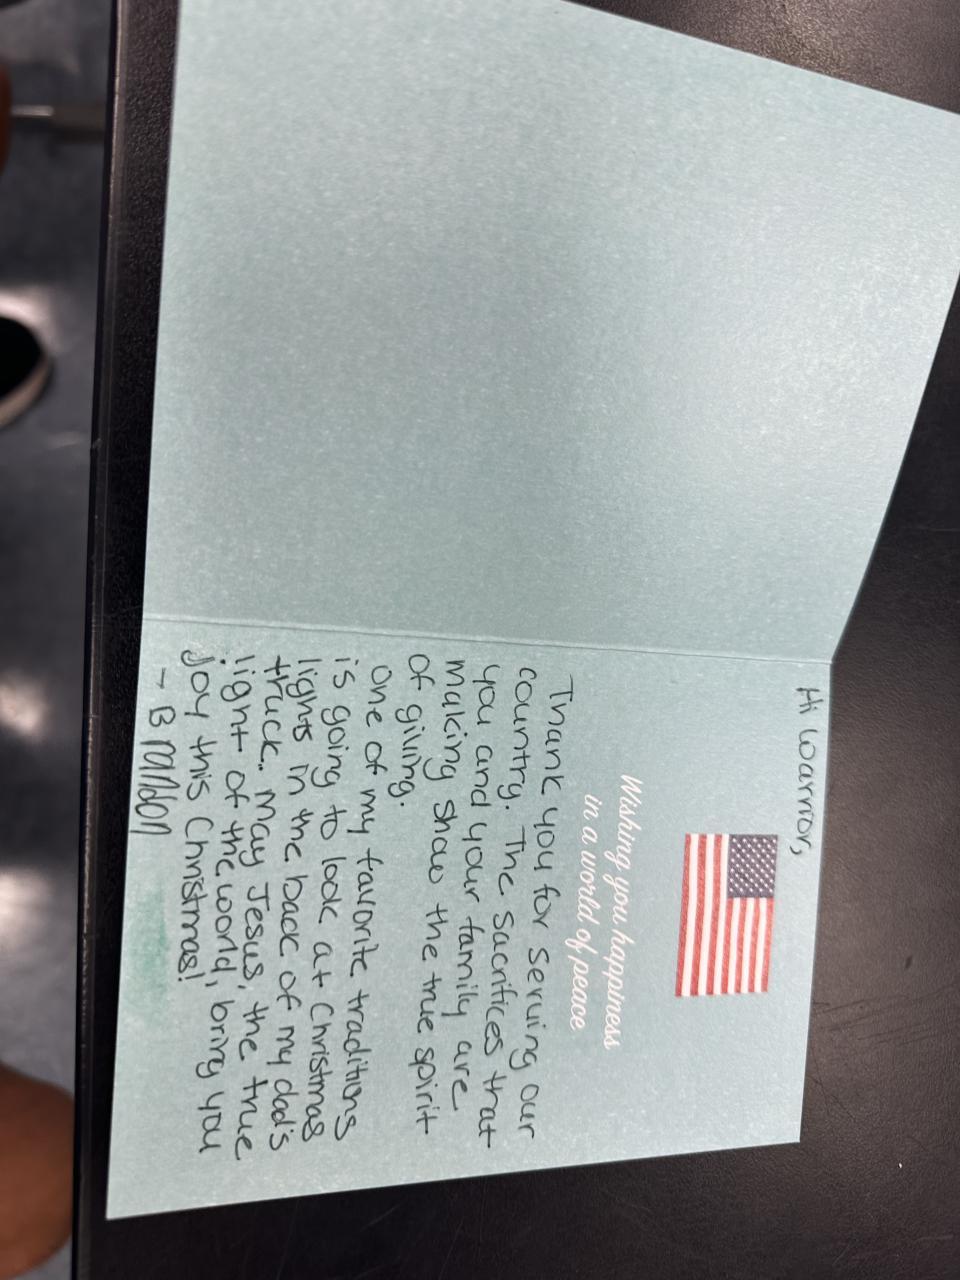 Hi Warrior,
Wishing you happiness
in a world of peace
Thank you for serving our
country. The sacrifices that
you and your family are
making show the true spirit
of giving.
One of my favorite traditions
is going to look at Christmas
lights in the back of my dad's
truck. May Jesus, the true
light of the world, bring you
joy this Christmas!
- Brandon